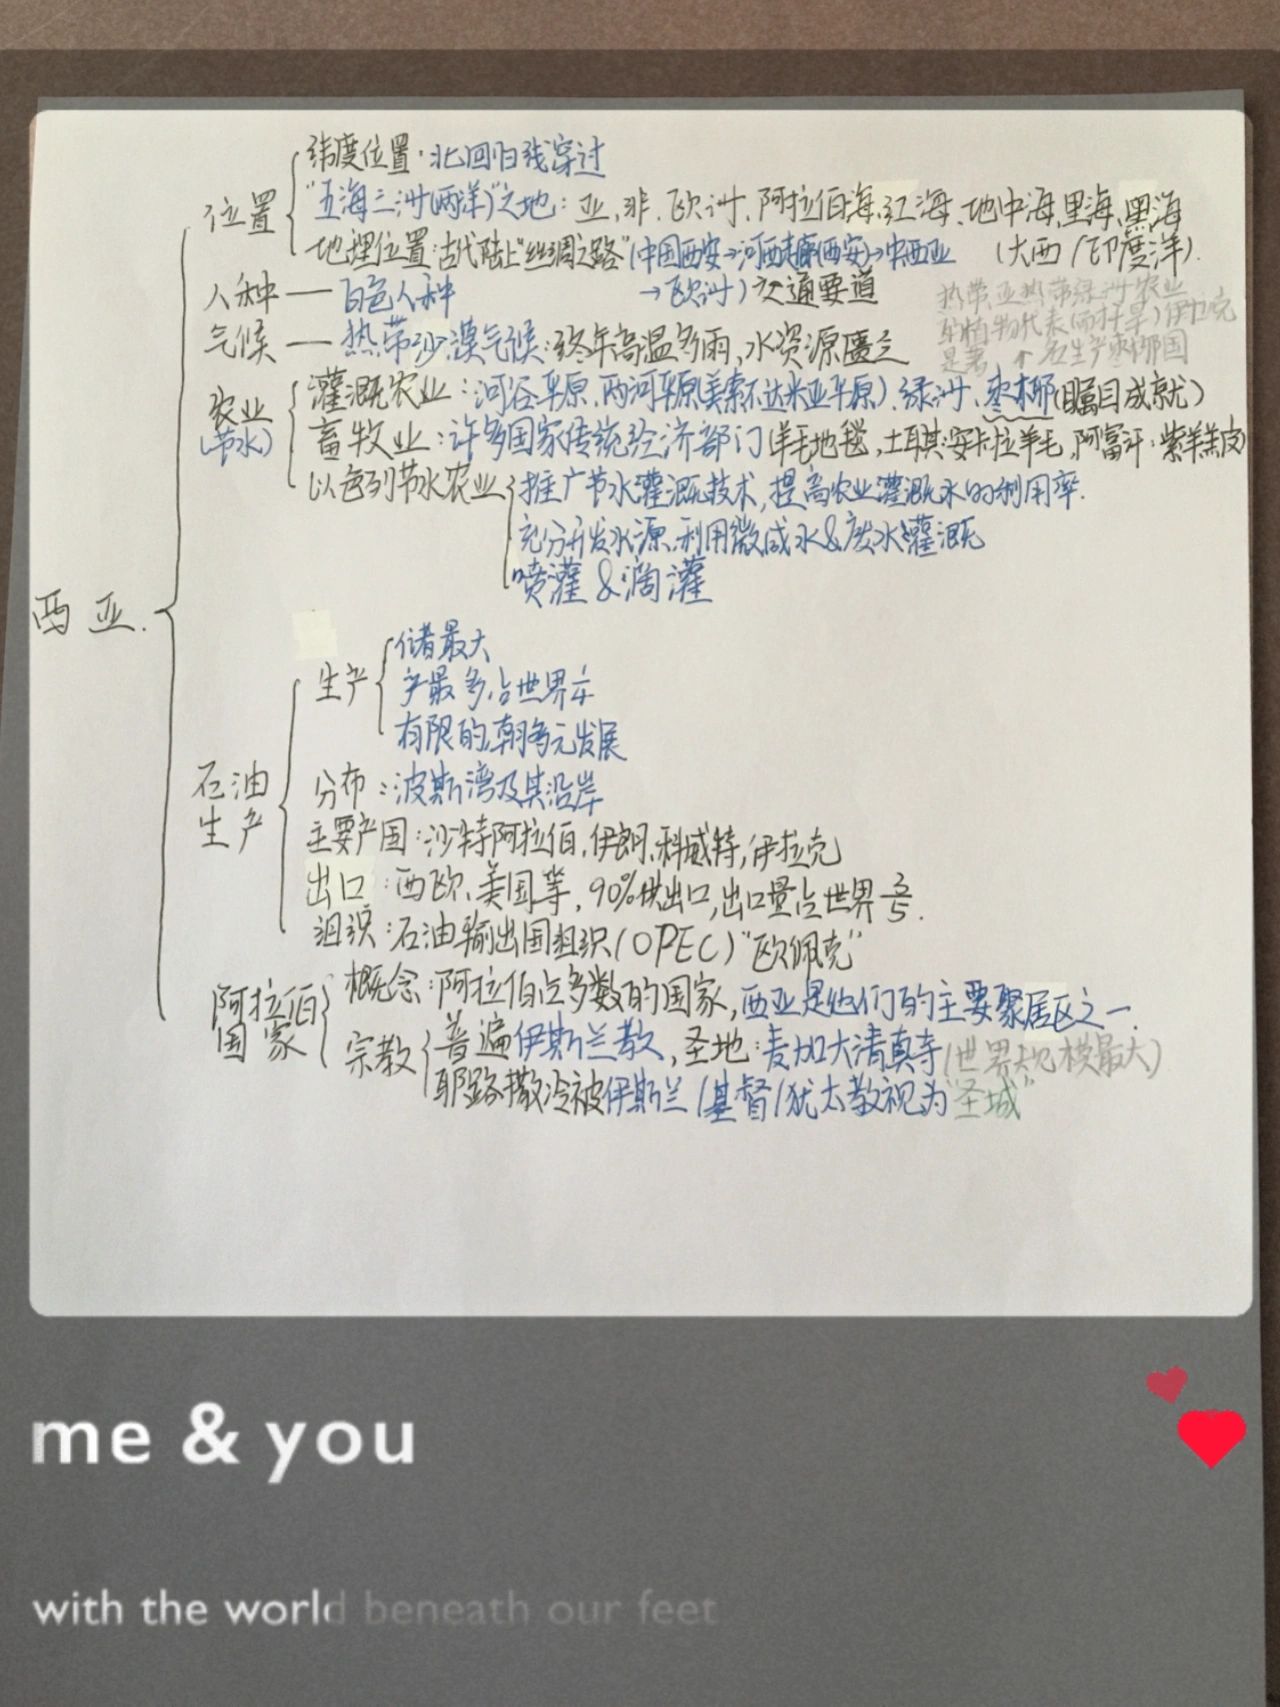 西亚.
位置
纬度位置:北回归线穿过
"五海三洲(两洋)"之地:亚、非、欧洲、阿拉伯海、红海、地中海、里海、黑海
(大西/印度洋).
地理位置:古代陆上"丝绸之路"(中国西安→河西走廊(西安)→中西亚
→欧洲)交通要道
人种 — 白色人种
气候 — 热带沙漠气候:终年高温多雨、水资源匮乏
热带、亚热带绿洲农业
植物代表(耐干旱)伊拉克
是著名生产枣椰国
农业
(节水)
灌溉农业:河谷平原、两河平原(美索不达米亚平原)、绿洲、枣椰(瞩目成就)
畜牧业:许多国家传统经济部门(羊毛地毯,土耳其:安卡拉羊毛,阿富汗:紫羊羔皮
以色列节水农业
推广节水灌溉技术,提高农业灌溉水的利用率.
充分开发水源,利用微咸水&废水灌溉
喷灌&滴灌
石油
生产
生产
储最大
产最多,占世界1/4
有限的,朝多元发展
分布:波斯湾及其沿岸
主要产国:沙特阿拉伯,伊朗,科威特,伊拉克
出口:西欧、美国等,90%供出口,出口量占世界3/5.
组织:石油输出国组织(OPEC)"欧佩克"
阿拉伯
国家
概念:阿拉伯占多数的国家,西亚是他们的主要聚居区之一.
宗教
普遍伊斯兰教,圣地:麦加大清真寺(世界规模最大)
耶路撒冷被伊斯兰/基督/犹太教视为"圣城"
me & you
with the world beneath our feet